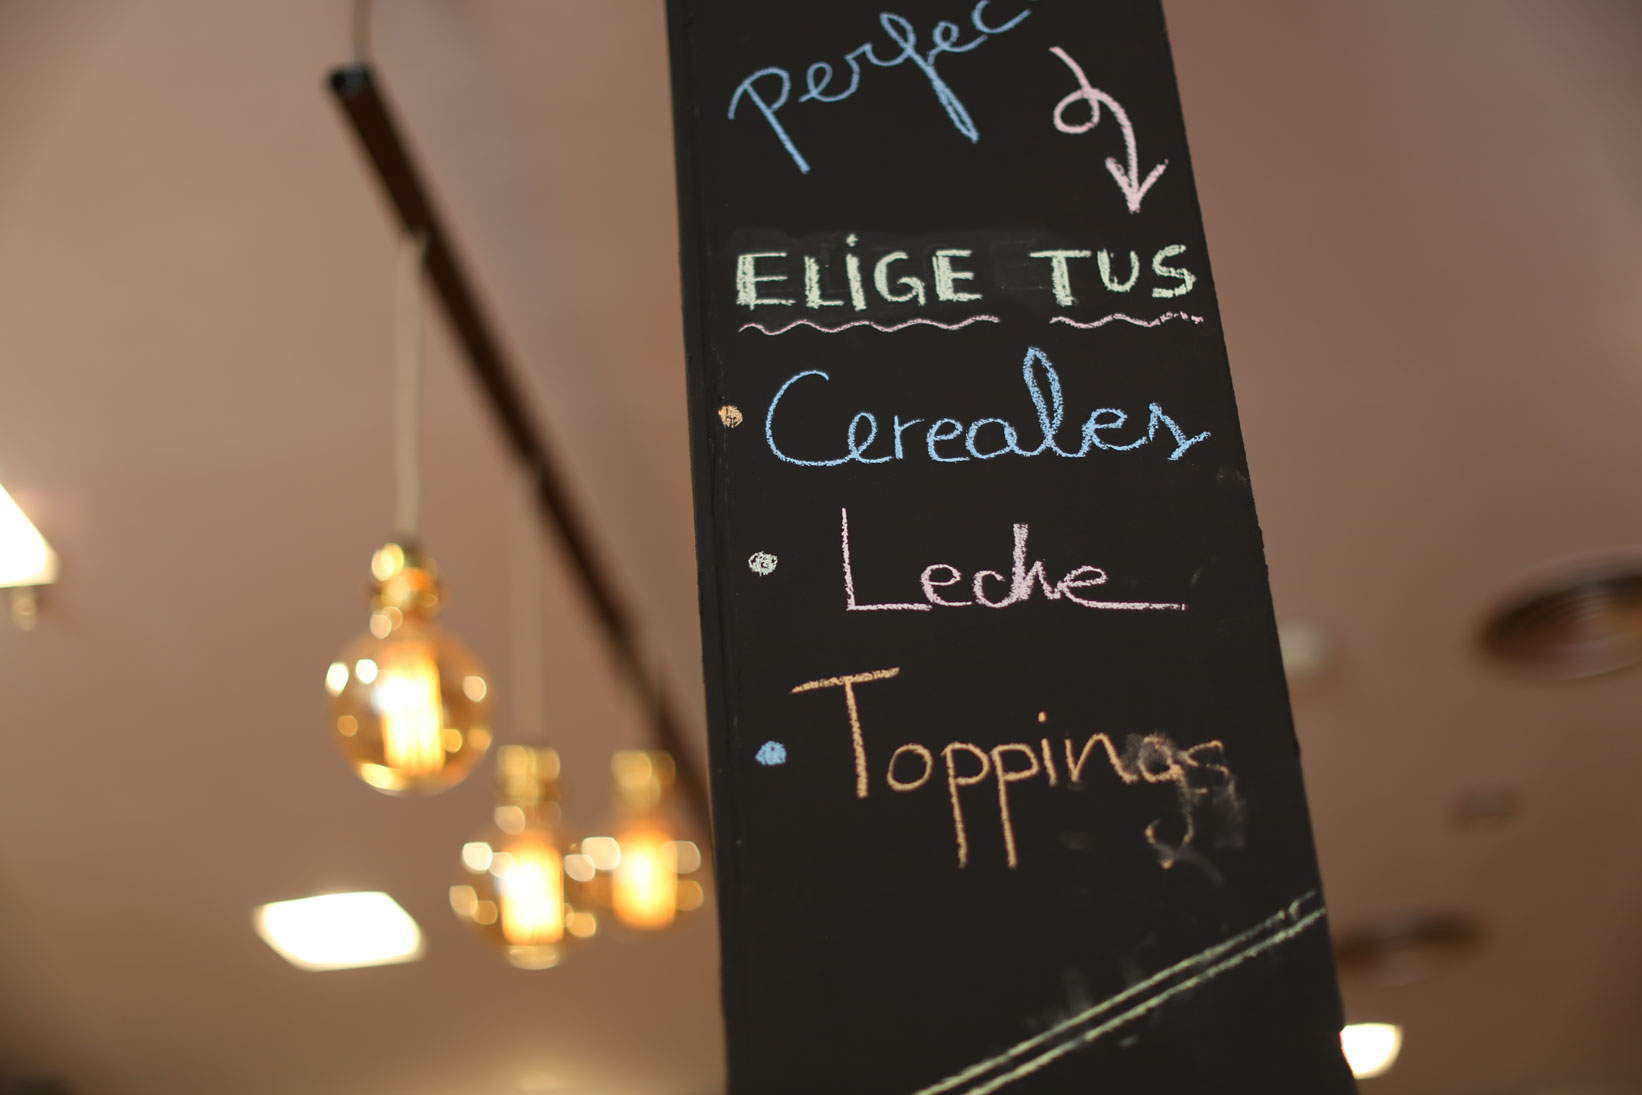 perfec
ELIGE TUS
Cereales
Leche
Toppings